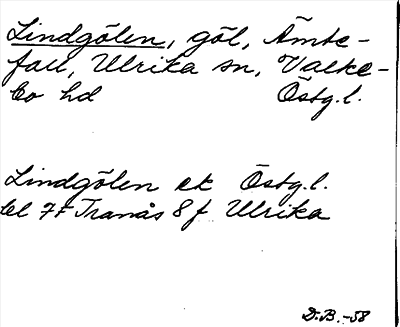 Lindgölen, göl, Ämte-
fall, Ulrika sn, Valke-
bo hd Östg.l.
Lindgölen ek Östg.l.
bl 7F Tranås 8f Ulrika
D.B.-58